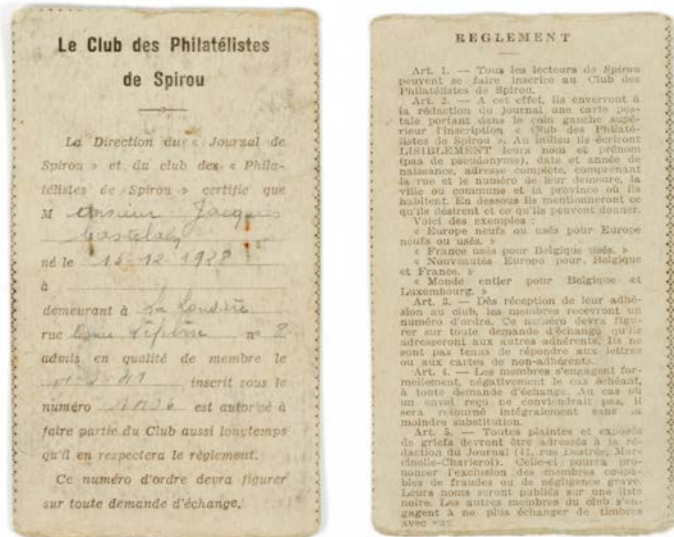 Le Club des Philatélistes
de Spirou
La Direction du « Journal de
Spirou » et du club des « Phila-
télistes de Spirou » certifie que
M onsieur Jacques
né le 15-12-1928
à
demeurant à La Louvière
rue n° 8
admis en qualité de membre le
inscrit sous le
numéro est autorisé à
faire partie du Club aussi longtemps
qu'il en respectera le règlement.
Ce numéro d'ordre devra figurer
sur toute demande d'échange.
REGLEMENT
Art. 1. — Tous les lecteurs de Spirou
peuvent se faire inscrire au Club des
Philatélistes de Spirou.
Art. 2. — A cet effet, ils enverront à
la rédaction du Journal une carte pos-
tale portant dans le coin gauche supé-
rieur l'inscription « Club des Philaté-
listes de Spirou ». Au milieu ils écriront
LISIBLEMENT leurs nom et prénom
(pas de pseudonyme), date et année de
naissance, adresse complète, comprenant
la rue et le numéro de leur demeure, la
ville ou commune et la province où ils
habitent. En dessous ils mentionneront ce
qu'ils désirent et ce qu'ils peuvent donner.
Voici des exemples :
« Europe neufs ou usés pour Europe
neufs ou usés. »
« France usés pour Belgique usés. »
« Nouveautés Europe pour Belgique
et France. »
« Monde entier pour Belgique et
Luxembourg. »
Art. 3. — Dès réception de leur adhé-
sion au club, les membres recevront un
numéro d'ordre. Ce numéro devra figu-
rer sur toute demande d'échange qu'ils
adresseront aux autres adhérents. Ils ne
sont pas tenus de répondre aux lettres
ou aux cartes de non-adhérents.
Art. 4. — Les membres s'engagent for-
mellement, négativement le cas échéant,
à toute demande d'échange. Au cas où
un envoi reçu ne conviendrait pas, il
sera retourné intégralement sans la
moindre substitution.
Art. 5. — Toutes plaintes et exposés
de griefs devront être adressés à la ré-
daction du Journal (41, rue Destrée, Mar-
cinelle-Charleroi). Celle-ci pourra pro-
noncer l'exclusion des membres coupa-
bles de fraudes ou de négligence grave.
Leurs noms seront publiés sur une liste
noire. Les autres membres du club s'en-
gagent à ne plus échanger de timbres
avec eux.